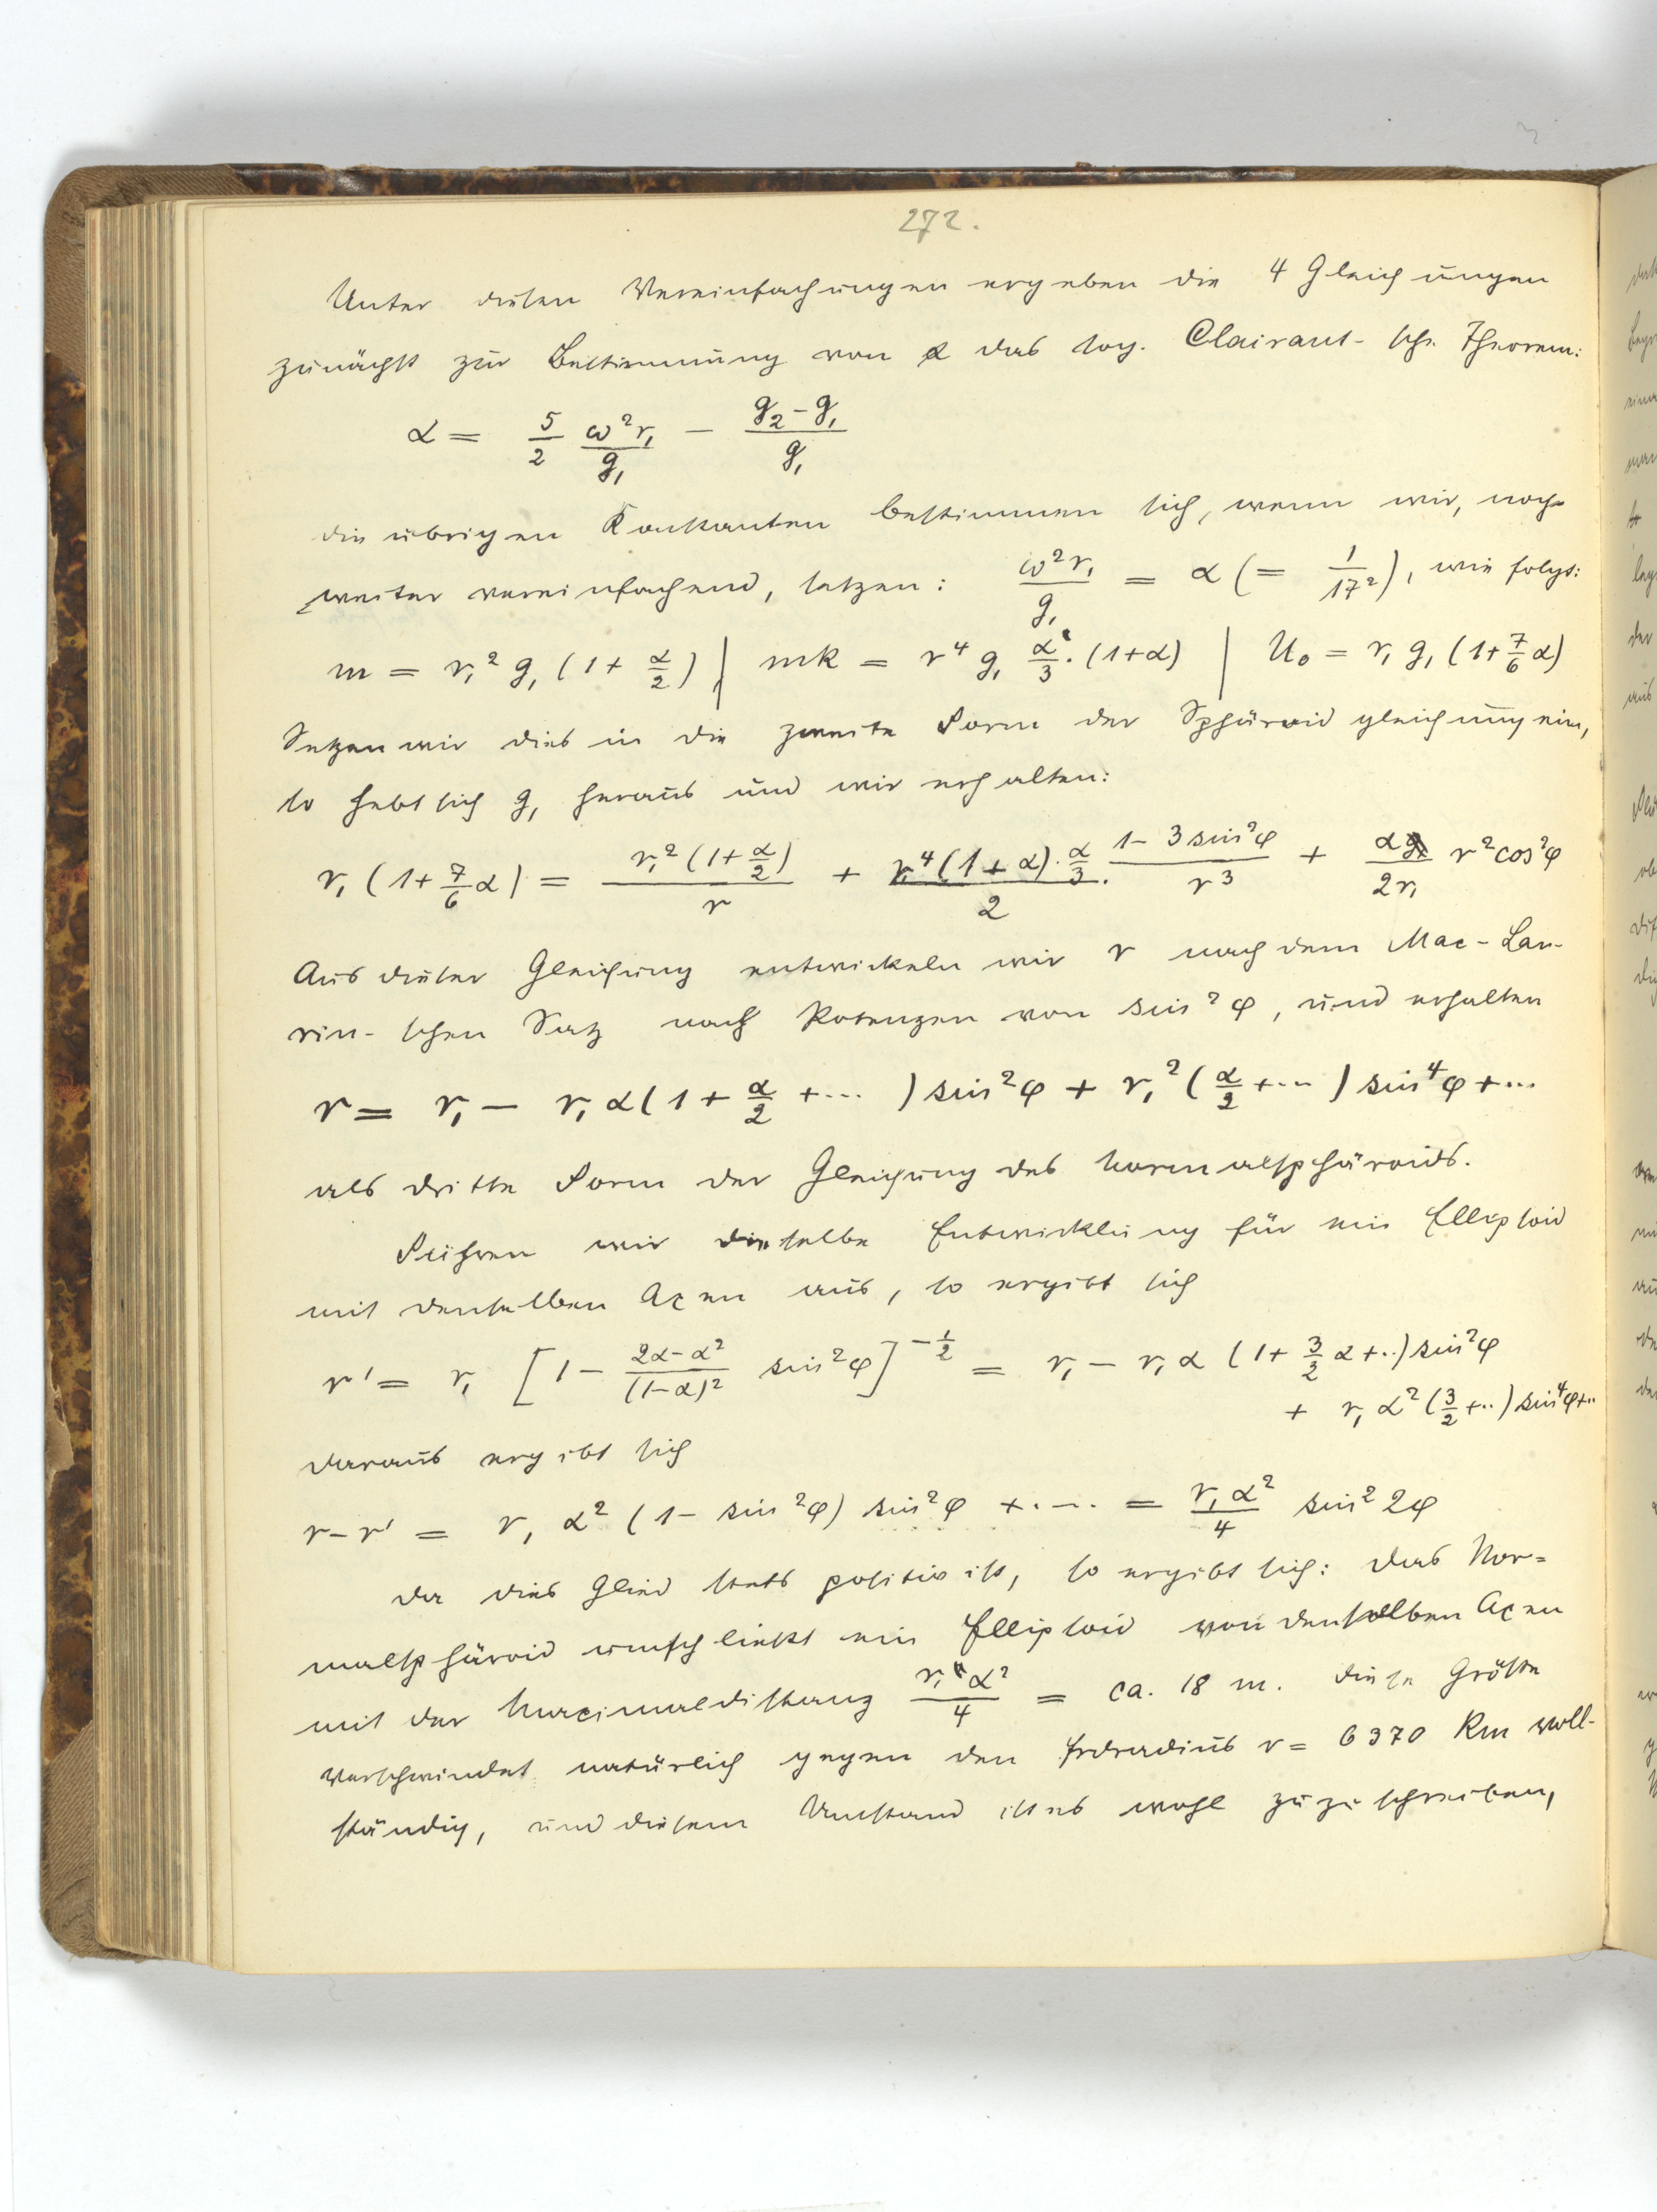 272.
Unter diesen Vereinfachungen ergeben die 4 Gleichungen
zunächst zur Bestimmung von α das sog. Clairaut-sche Theorem:
α = 5/2 ω²r₁/g₁ − (g₂−g₁)/g₁
die übrigen Konstanten bestimmen sich, wenn wir, noch
weiter vereinfachend, setzen: ω²r₁/g₁ = α (= 1/17²), wie folgt:
m = r₁² g₁ (1+ α/2) | mk = r⁴ g₁ α/3 · (1+α) | U₀ = r₁ g₁ (1+ 7/6 α)
Setzen wir dies in die zweite Form der Sphäroidgleichung ein,
so hebt sich g₁ heraus und wir erhalten:
r₁ (1+ 7/6 α) = r₁² (1+ α/2)/r + r₁⁴ (1+α) · α/3 / 2 · (1−3 sin²φ)/r³ + α/2r₁ r² cos²φ
Aus dieser Gleichung entwickeln wir r nach dem Mac-Lau-
rin-schen Satz nach Potenzen von sin²φ, und erhalten
r = r₁ − r₁ α (1+ α/2 + ...) sin²φ + r₁² (α/2 + ...) sin⁴φ + ...
als dritte Form der Gleichung des Normalsphäroids.
Führen wir dieselbe Entwicklung für ein Ellipsoid
mit denselben Axen aus, so ergibt sich
r' = r₁ [1 − (2α−α²)/(1−α)² sin²φ]^(−1/2) = r₁ − r₁ α (1+ 3/2 α + ..) sin²φ
+ r₁ α² (3/2 + ..) sin⁴φ + ..
daraus ergibt sich
r−r' = r₁ α² (1− sin²φ) sin²φ + .... = r₁ α²/4 sin² 2φ
da dies Glied stets positiv ist, so ergibt sich: Das Nor=
malsphäroid umschließt ein Ellipsoid von denselben Axen
mit der Maximaldistanz r₁ α²/4 = ca. 18 m. diese Größe
verschwindet natürlich gegen den Erdradius r = 6370 Km voll-
ständig, und diesem Umstand ist es wohl zuzuschreiben,